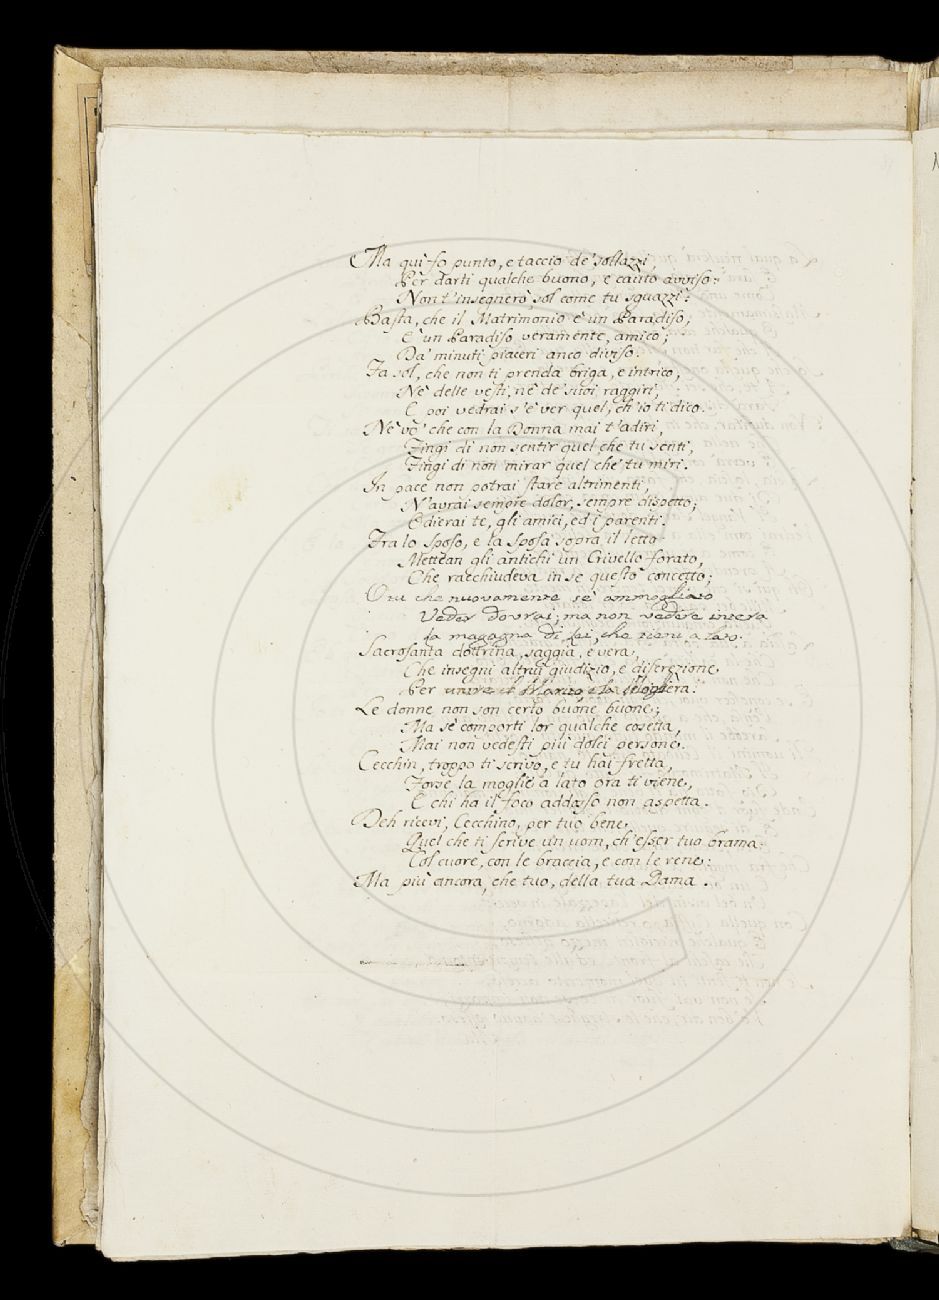 Ma qui fo punto, e taccio de' sollazzi,
Per darti qualche buono, e cauto avviso:
Non t'insegnerò sol come tu sguazzi:
Basta, che il Matrimonio è un Paradiso;
E' un Paradiso veramente, amico;
Da' minuti piaceri anco diviso.
Fa sol, che non ti prenda briga, e intrico,
Nè delle vesti, nè de' suoi raggiri,
E poi vedrai s'è ver quel, ch'io ti dico.
Nè vo' che con la Donna mai t'adiri,
Fingi di non sentir quel che tu senti,
Fingi di non mirar quel che tu miri.
In pace non potrai stare altrimenti,
N'avrai sempre dolor, sempre dispetto;
Odierai te, gli amici, ed i parenti.
Fra lo sposo, e la sposa sopra il letto
Mettean gli antichi un Crivello forato,
Che racchiudeva in se questo concetto;
O tu che nuovamente se' ammogliato
Veder dovrai; ma non vedere intera
La magagna di Lei, che tieni a lato.
Sacrosanta dottrina, saggia, e vera,
Che insegni altrui giudizio, e discrezione
Per unire il Marito, e la Mogliera:
Le donne non son certo buone buone;
Ma se comporti lor qualche cosetta,
Mai non vedesti più dolci persone.
Cecchin, troppo ti scrivo, e tu hai fretta,
Forse la moglie a lato ora ti viene,
E chi ha il foco addosso non aspetta.
Deh ricevi, Cecchino, per tuo bene
Quel che ti scrive un uom, ch'esser tuo brama
Col cuore, con le braccia, e con le rene:
Ma più ancora, che tuo, della tua Dama.